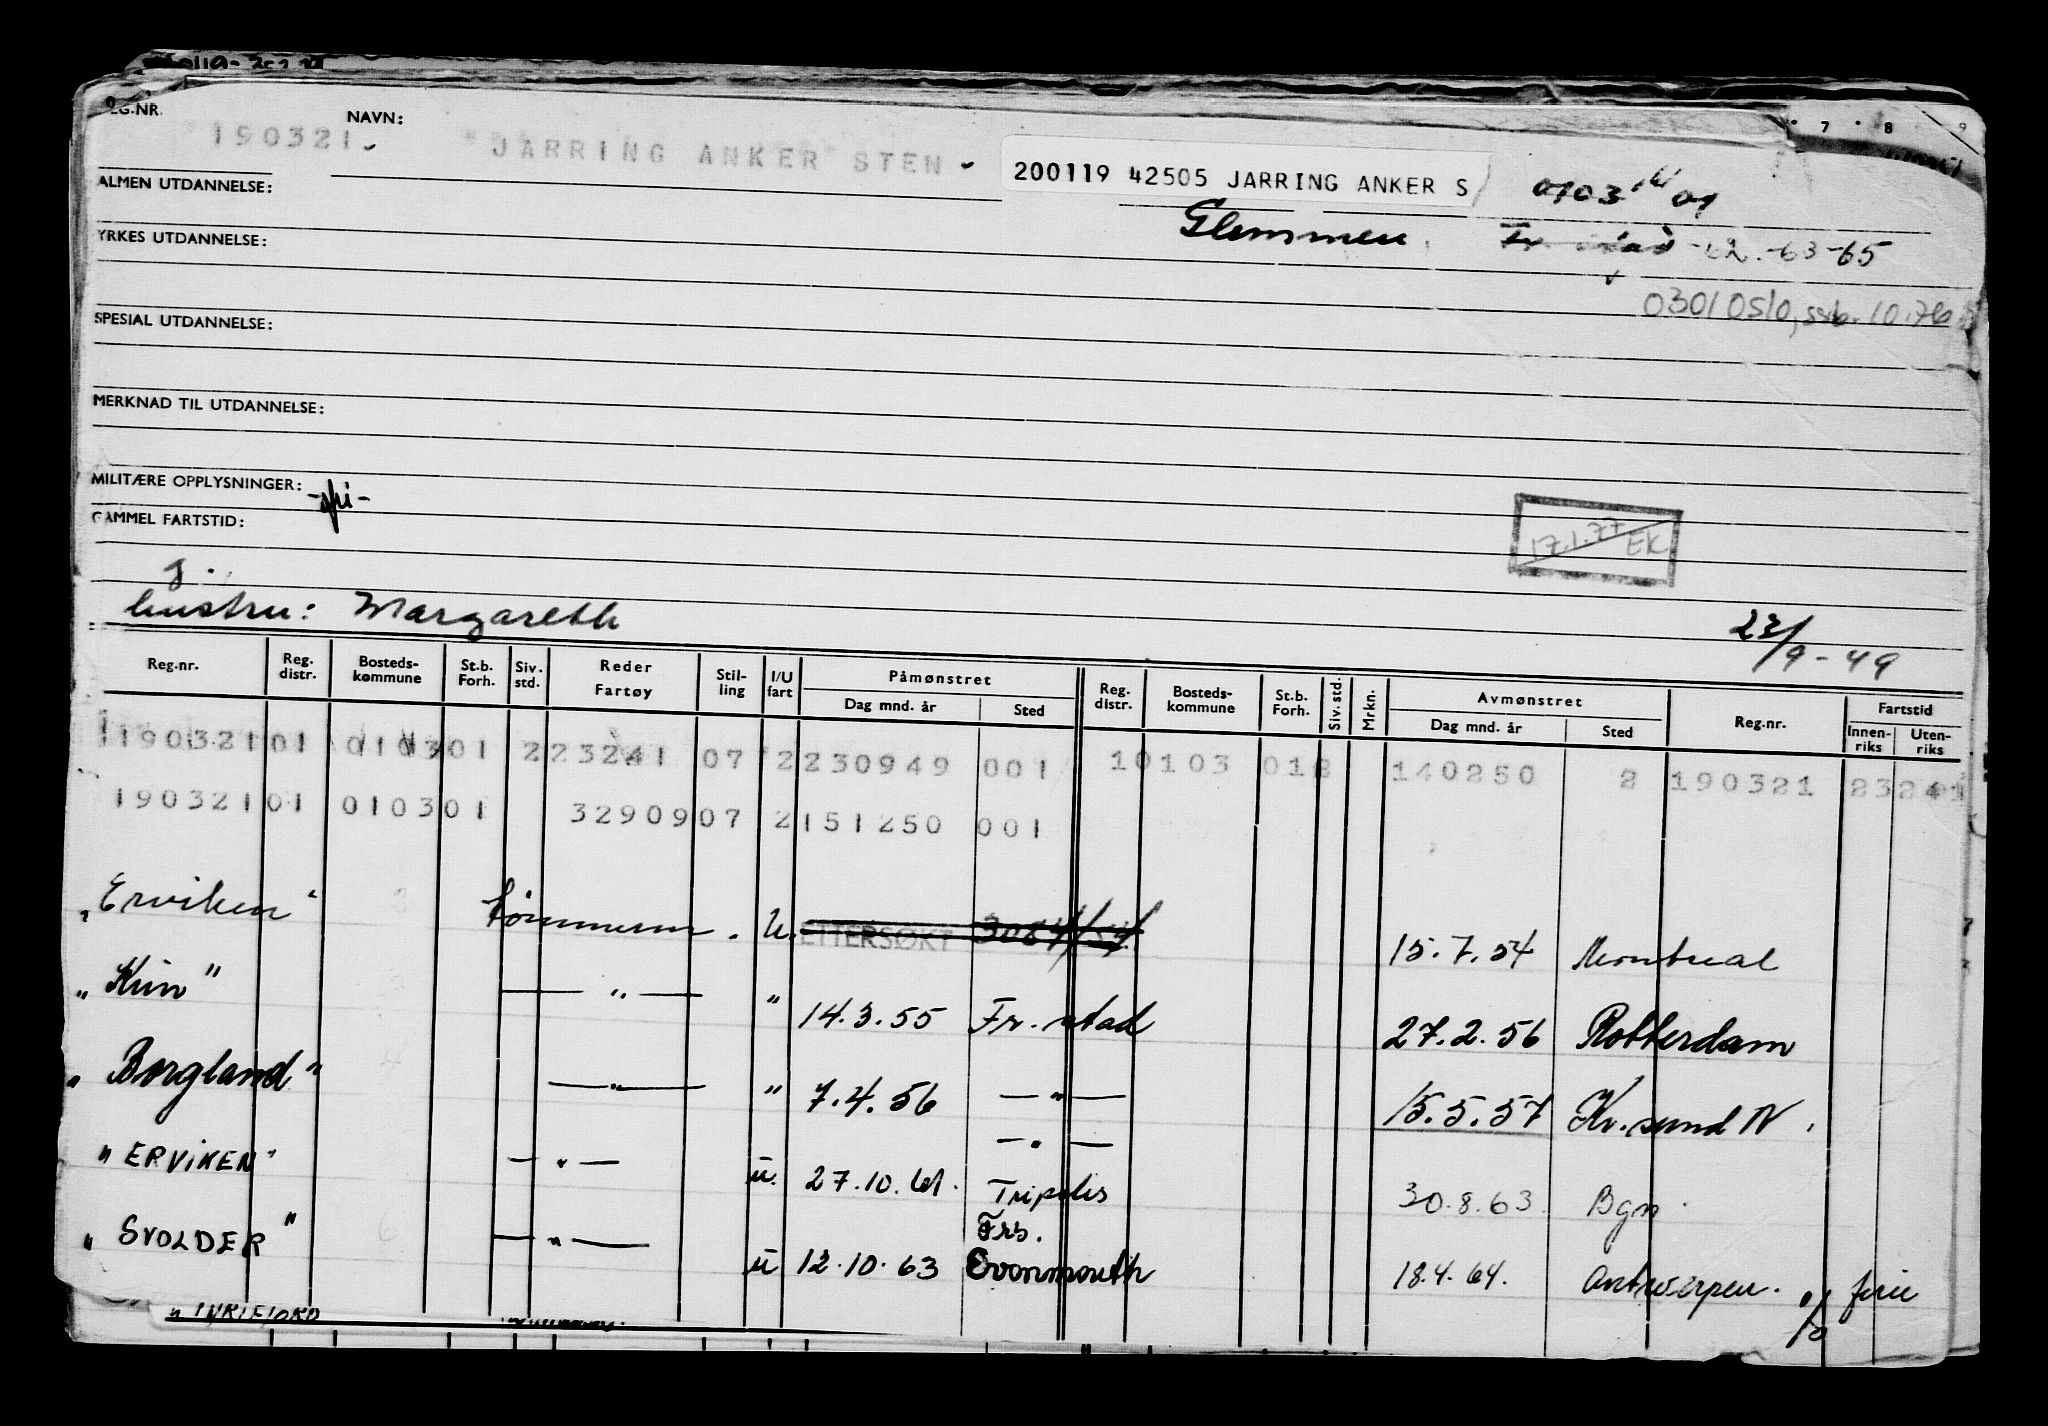 EG.NR. NAVN: 7 8 9
190321- JARRING ANKER STEN - 200119 42505 JARRING ANKER S
ALMEN UTDANNELSE: 0103 01
Glemmen. -62 -63 -65
YRKES UTDANNELSE:
0301 Oslo, 10.76
SPESIAL UTDANNELSE:
MERKNAD TIL UTDANNELSE:
MILITÆRE OPPLYSNINGER: -fri-
GAMMEL FARTSTID:
17.1.77 EK
g.
hustru: Margareth
23/9-49
Reg.nr. Reg. distr. Bosteds-kommune St.b. Forh. Siv. std. Reder Fartøy Stil-ling I/U fart Påmønstret Dag mnd. år Sted Reg. distr. Bosteds-kommune St.b. Forh. Siv. std. Mrkn. Avmønstret Dag mnd. år Sted Reg.nr. Fartstid Innen-riks Uten-riks
190321 01 0103 01 2 23241 07 2 230949 001 10103 012 140250 2 190321 23241
190321 01 0103 01 32909 07 2 151250 001
"Erviken" U. ETTERSØKT 15.7.54 Montreal
"Kim" — " — " 14.3.55 Fr.stad 27.2.56 Rotterdam
"Borgland" — " — " 7.4.56 — " — 15.5.57 Kr.sund N.
— " —
"ERVIKEN" — " — u. 27.10.61. Tripolis 30.8.63 Bgn.
Frs.
"SVOLDER" — " — u 12.10.63 Avonmouth 18.4.64. Antwerpen. % ferie
"TYRIFJORD